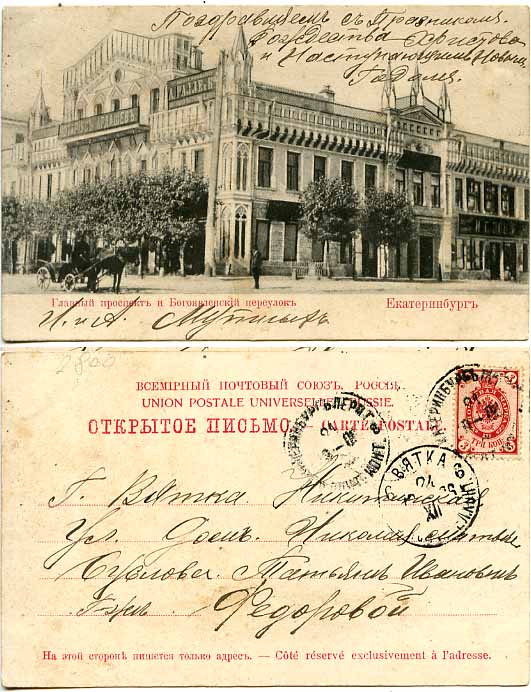 Поздравляем съ Празникомъ
Рождества Христова
и Наступающимъ Новым
Годамъ.
Главный проспектъ и Богоявленскій переулокъ
Екатеринбургъ
И. и А.
2800
ВСЕМІРНЫЙ ПОЧТОВЫЙ СОЮЗЪ. РОССІЯ.
UNION POSTALE UNIVERSELLE. RUSSIE.
ОТКРЫТОЕ ПИСЬМО. — CARTE POSTALE.
ЕКАТЕРИНБУРГЪ
ВЯТКА
ТРИ КОП.
Г. Вятка Никитинская
Ул. Домъ. Николая
Татьянѣ Ивановнѣ
Федоровой
На этой сторонѣ пишется только адресъ. — Côté réservé exclusivement à l'adresse.